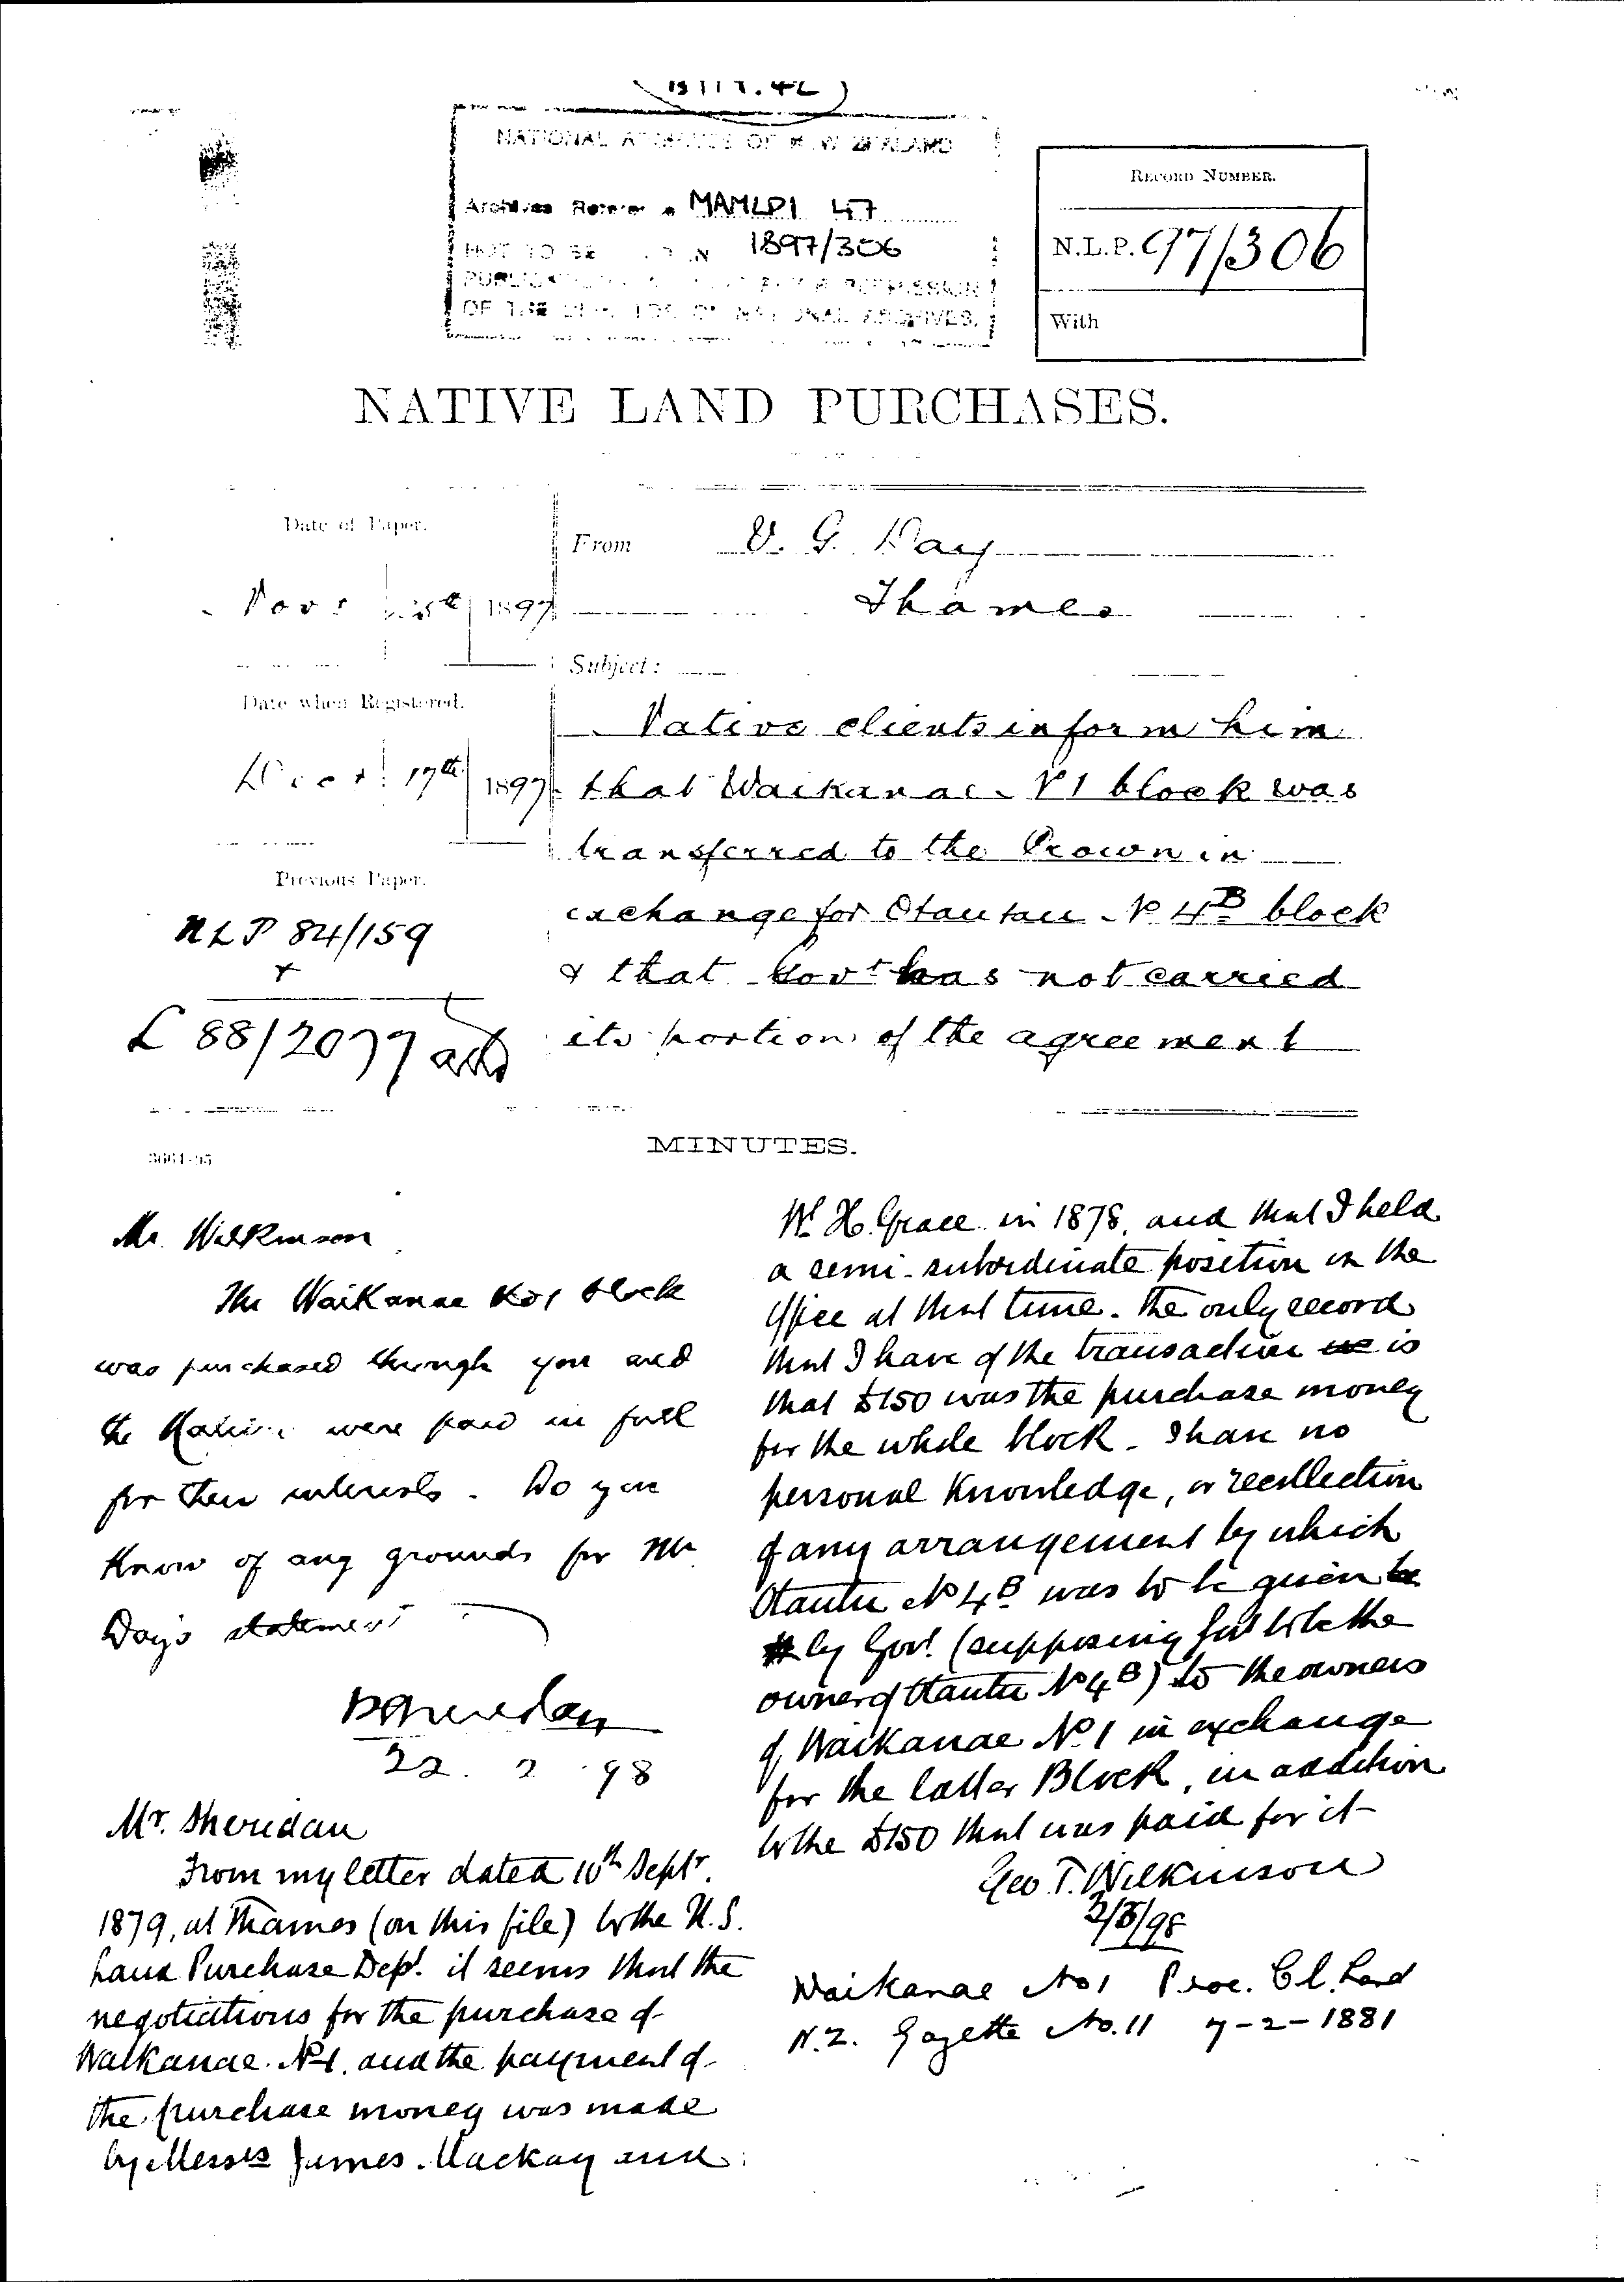 NATIONAL ARCHIVES OF NEW ZEALAND
Archives Reference MAMLP1 47
1897/306
NOT TO BE
OF THE NATIONAL ARCHIVES.
RECORD NUMBER.
N.L.P. 97/306
With
NATIVE LAND PURCHASES.
Date of Paper.
Novr 25th 1897
Date when Registered.
Decr 17th 1897
Previous Paper.
NLP 84/159
+
L 88/2077
From V. G. Day
Thames
Subject:
Native clients inform him
that Waikanae No 1 block was
transferred to the Crown in
exchange for Otautau No 4B block
& that Govt has not carried
its portion of the agreement
3664-95
MINUTES.
Mr. Wilkinson
The Waikanae No 1 block
was purchased through you and
the Natives were paid in full
for their interests. Do you
know of any grounds for Mr
Day's statement
P Sheridan
22. 2. 98
Mr. Sheridan
From my letter dated 10th Septr.
1879, at Thames (on this file) to the U.S.
Land Purchase Dept. it seems that the
negotiations for the purchase of
Waikanae No 1. and the payment of
the purchase money was made
by Messrs James Mackay and
W. H. Grace in 1878, and that I held
a semi-subordinate position in the
office at that time. The only record
that I have of the transaction is
that £150 was the purchase money
for the whole block. I have no
personal knowledge, or recollection
of any arrangement by which
Otautu No 4B was to be given
by Govt. (supposing to be the
owner of Otautu No 4B) to the owners
of Waikanae No 1 in exchange
for the latter Block, in addition
to the £150 that was paid for it
Geo. T. Wilkinson
2/3/98
Waikanae No 1 Proc. Cl. Land
N.Z. Gazette No. 11 7-2-1881